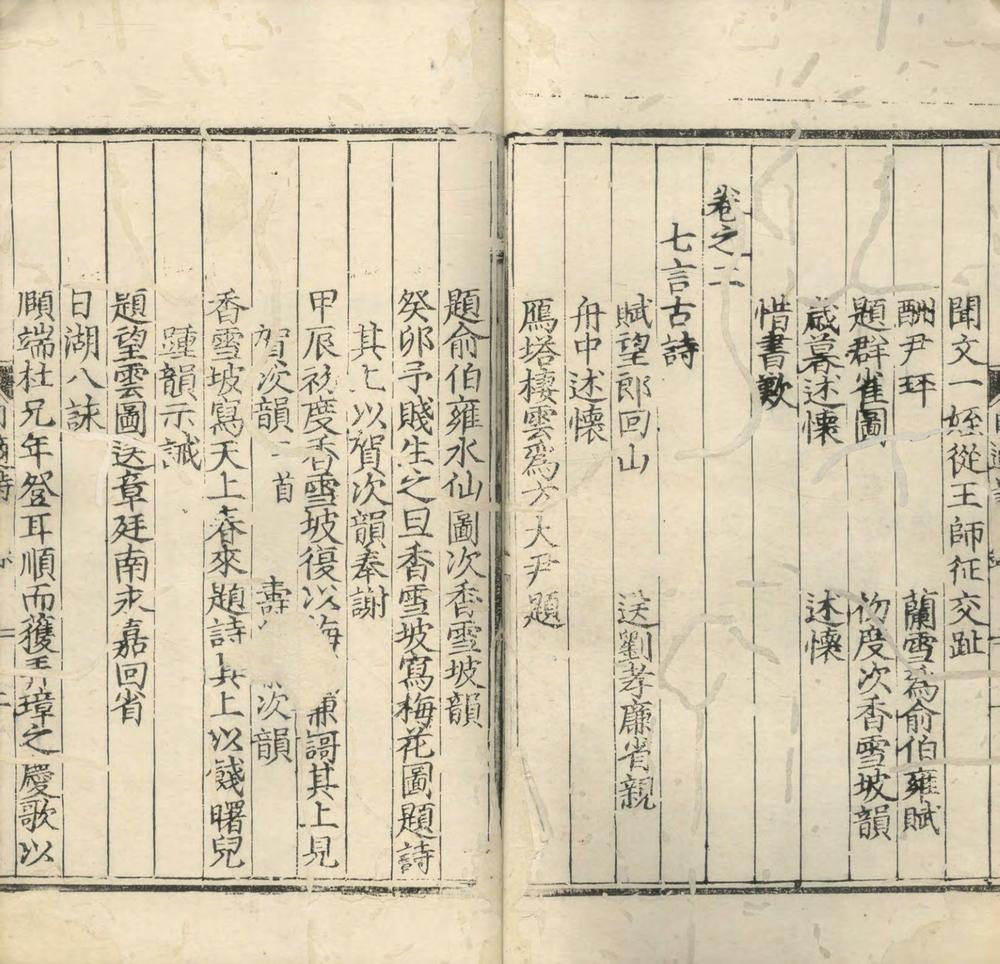 聞文一姪從王師征交趾
酬尹玶 蘭雪爲俞伯雍賦
題群雀圖 初度次香雪坡韻
歲暮述懷 述懷
惜書歎
卷之二
七言古詩
賦望郎回山 送劉孝廉省親
舟中述懷
鴈塔棲雲爲方大尹題
題俞伯雍水仙圖次香雪坡韻
癸卯予賤生之旦香雪坡寫梅花圖題詩
其上以賀次韻奉謝
甲辰初度香雪坡復以梅 謌其上見
賀次韻二首 壽 次韻
香雪坡寫天上春來題詩其上以餞曙兒
踵韻示誡
題望雲圖送章廷南永嘉回省
日湖八詠
頋端杜兄年登耳順而獲弄璋之慶歌以